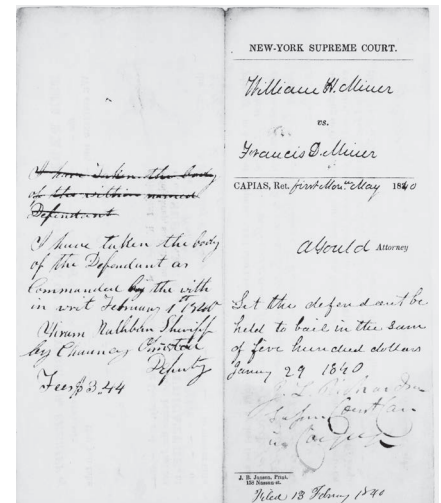 I have taken the body
of the within named
Defendant
I have taken the body
of the Defendant as
Commanded by the with
in writ February 1st 1840
Hiram Rathbun Sheriff
by Chauncey
Deputy
Fees $3.44
NEW-YORK SUPREME COURT.
William H. Miner
vs.
Francis D. Miner
CAPIAS, Ret. first Mon. May 1840
A Gould Attorney
Let the defendant be
held to bail in the sum
of five hundred dollars
Janury 29 1840
J. B. Jansen, Print.
158 Nassau st.
Filed 13 Februy 1840